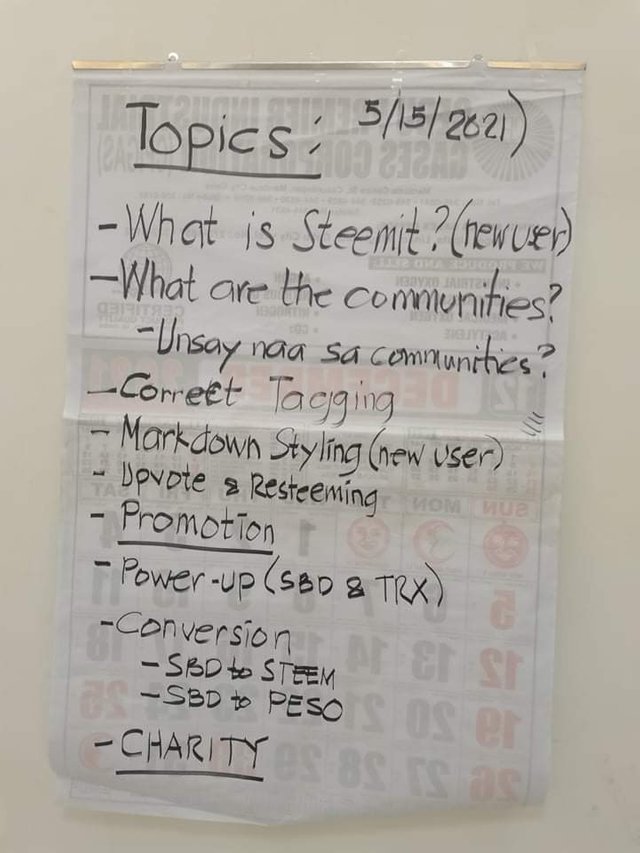 Topics: 5/15/2021)
- What is Steemit? (new user)
- What are the communities?
- Unsay naa sa communities?
- Correct Tagging
- Markdown Styling (new user)
- Upvote & Resteeming
- Promotion
- Power-up (SBD & TRX)
- Conversion
- SBD to STEEM
- SBD to PESO
- CHARITY